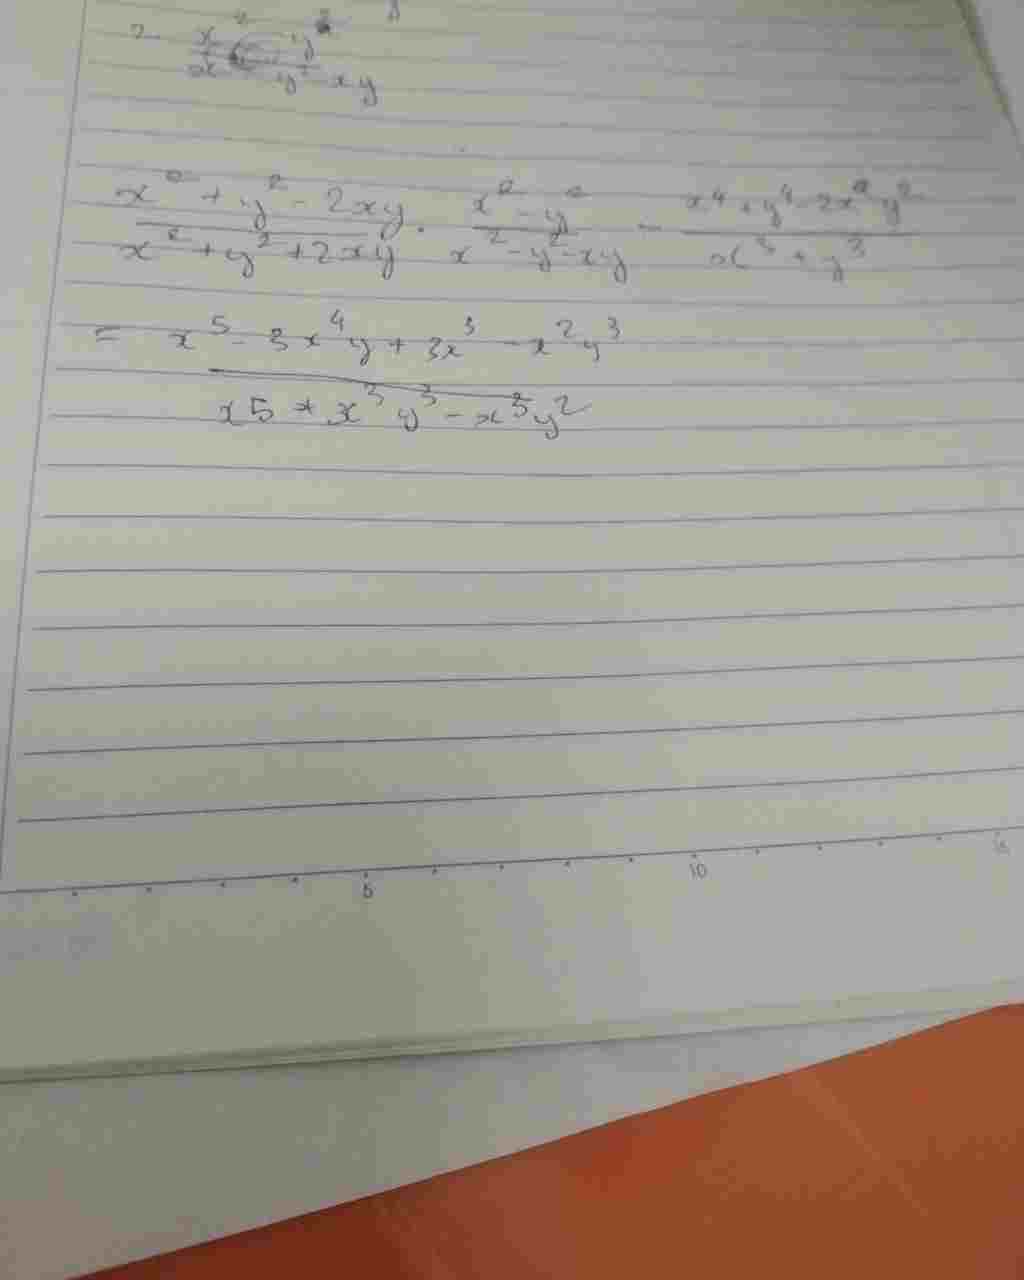 x² + y² - 2xy / x² + y² + 2xy . x² - y² / x² - y² - xy - x⁴ + y⁴ - 2x²y² / x³ + y³
= x⁵ - 3x⁴y + 3x³ - x²y³ / x5 + x³y³ - x³y²
5 10 15